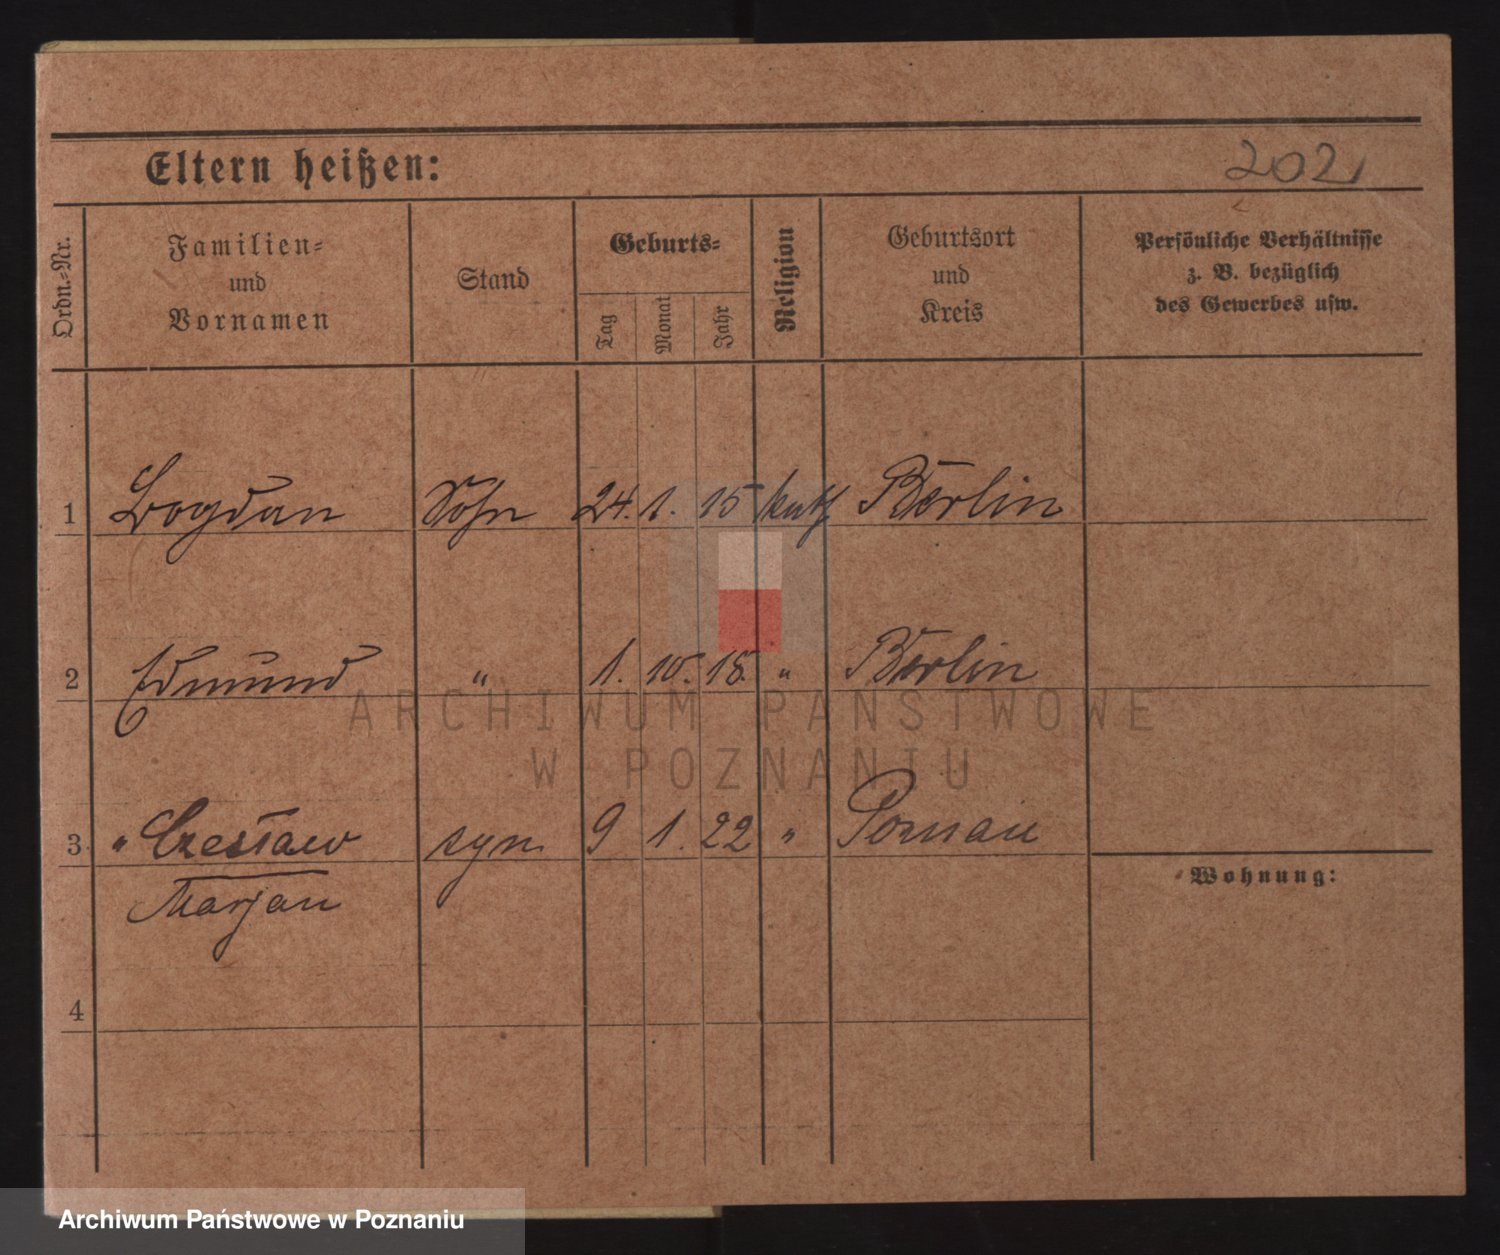 Eltern heißen:
202
Ordn.-Nr.
Familien-
und
Vornamen
Stand
Geburts-
Tag
Monat
Jahr
Religion
Geburtsort
und
Kreis
Persönliche Verhältnisse
z. B. bezüglich
des Gewerbes usw.
1 Bogdan Sohn 24. 1. 15 kath Berlin
2 Edmund " 1. 10. 18. " Berlin
ARCHIWUM PAŃSTWOWE
W POZNANIU
3. " Czesław syn 9 1. 22 " Poznań
Marjan
Wohnung:
4
Archiwum Państwowe w Poznaniu